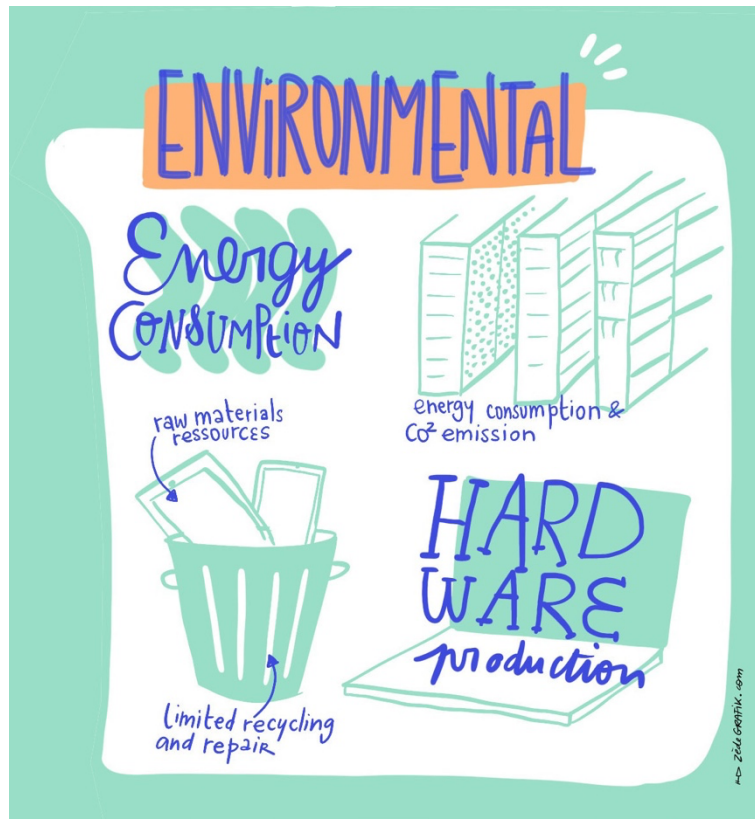 ENViRONMENTAL
Energy
CONSUMPtiON
energy consumption &
CO² emission
raw materials
ressources
HARD
WARE
production
limited recycling
and repair
ZédeGRAFIK.com